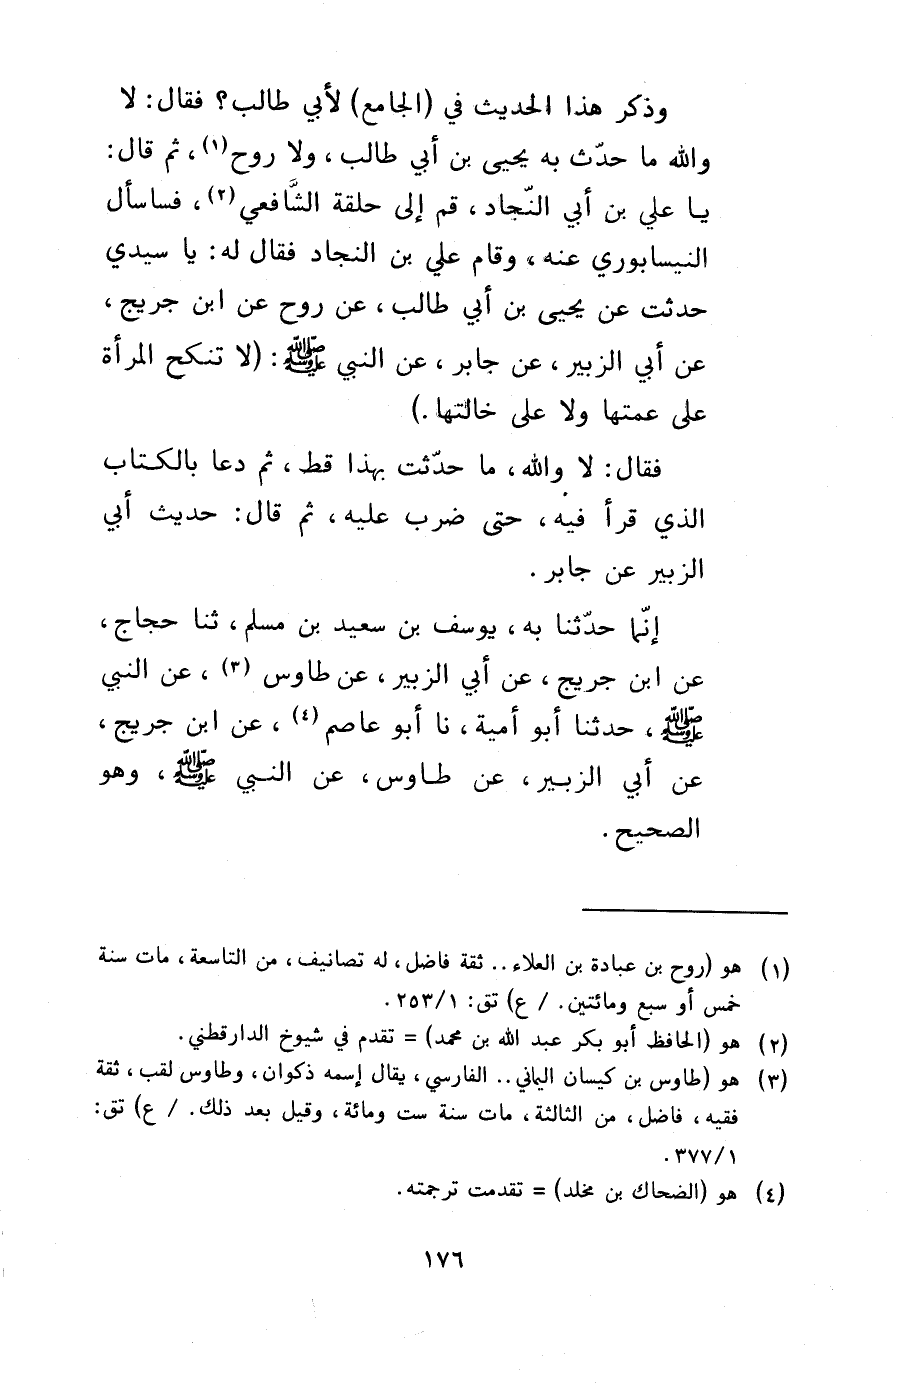 وذكر هذا الحديث في (الجامع) لأبي طالب؟ فقال: لا
والله ما حدّث به يحيى بن أبي طالب، ولا روح(١)، ثم قال:
يا علي بن أبي النّجاد، قم إلى حلقة الشَّافعي(٢)، فساسأل
النيسابوري عنه، وقام علي بن النجاد فقال له: يا سيدي
حدثت عن يحيى بن أبي طالب، عن روح عن ابن جريج،
عن أبي الزبير، عن جابر، عن النبي ﷺ: (لا تنكح المرأة
على عمتها ولا على خالتها.)
فقال: لا والله، ما حدّثت بهذا قط، ثم دعا بالكتاب
الذي قرأ فيه، حتى ضرب عليه، ثم قال: حديث أبي
الزبير عن جابر.
إنّما حدّثنا به، يوسف بن سعيد بن مسلم، ثنا حجاج،
عن ابن جريج، عن أبي الزبير، عن طاوس (٣)، عن النبي
ﷺ، حدثنا أبو أمية، نا أبو عاصم(٤)، عن ابن جريج،
عن أبي الزبير، عن طاوس، عن النبي ﷺ، وهو
الصحيح.
(١) هو (روح بن عبادة بن العلاء.. ثقة فاضل، له تصانيف، من التاسعة، مات سنة
خمس أو سبع ومائتين. / ع) تق: ٢٥٣/١.
(٢) هو (الحافظ أبو بكر عبد الله بن محمد) = تقدم في شيوخ الدارقطني.
(٣) هو (طاوس بن كيسان اليماني.. الفارسي، يقال إسمه ذكوان، وطاوس لقب، ثقة
فقيه، فاضل، من الثالثة، مات سنة ست ومائة، وقيل بعد ذلك. / ع) تق:
٣٧٧/١.
(٤) هو (الضحاك بن مخلد) = تقدمت ترجمته.
١٧٦